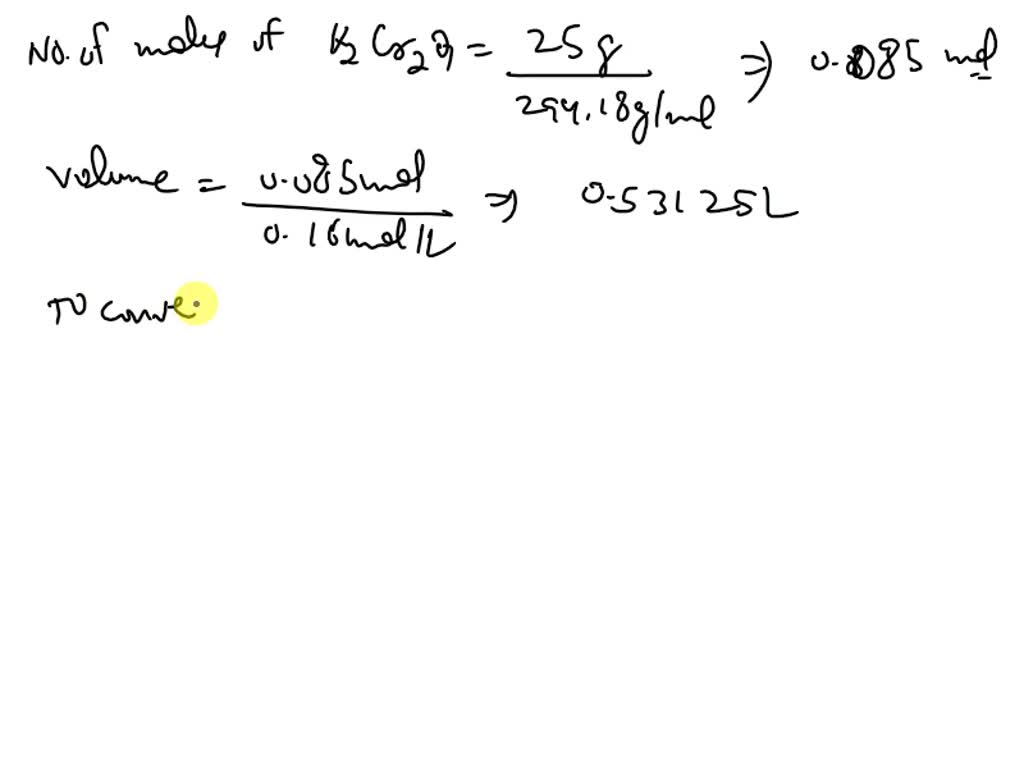 No. of moles of K2Cr2O7 = 25g / 294.18g/mol ⇒ 0.085 mol
Volume = 0.085mol / 0.16mol/L ⇒ 0.53125L
To conve